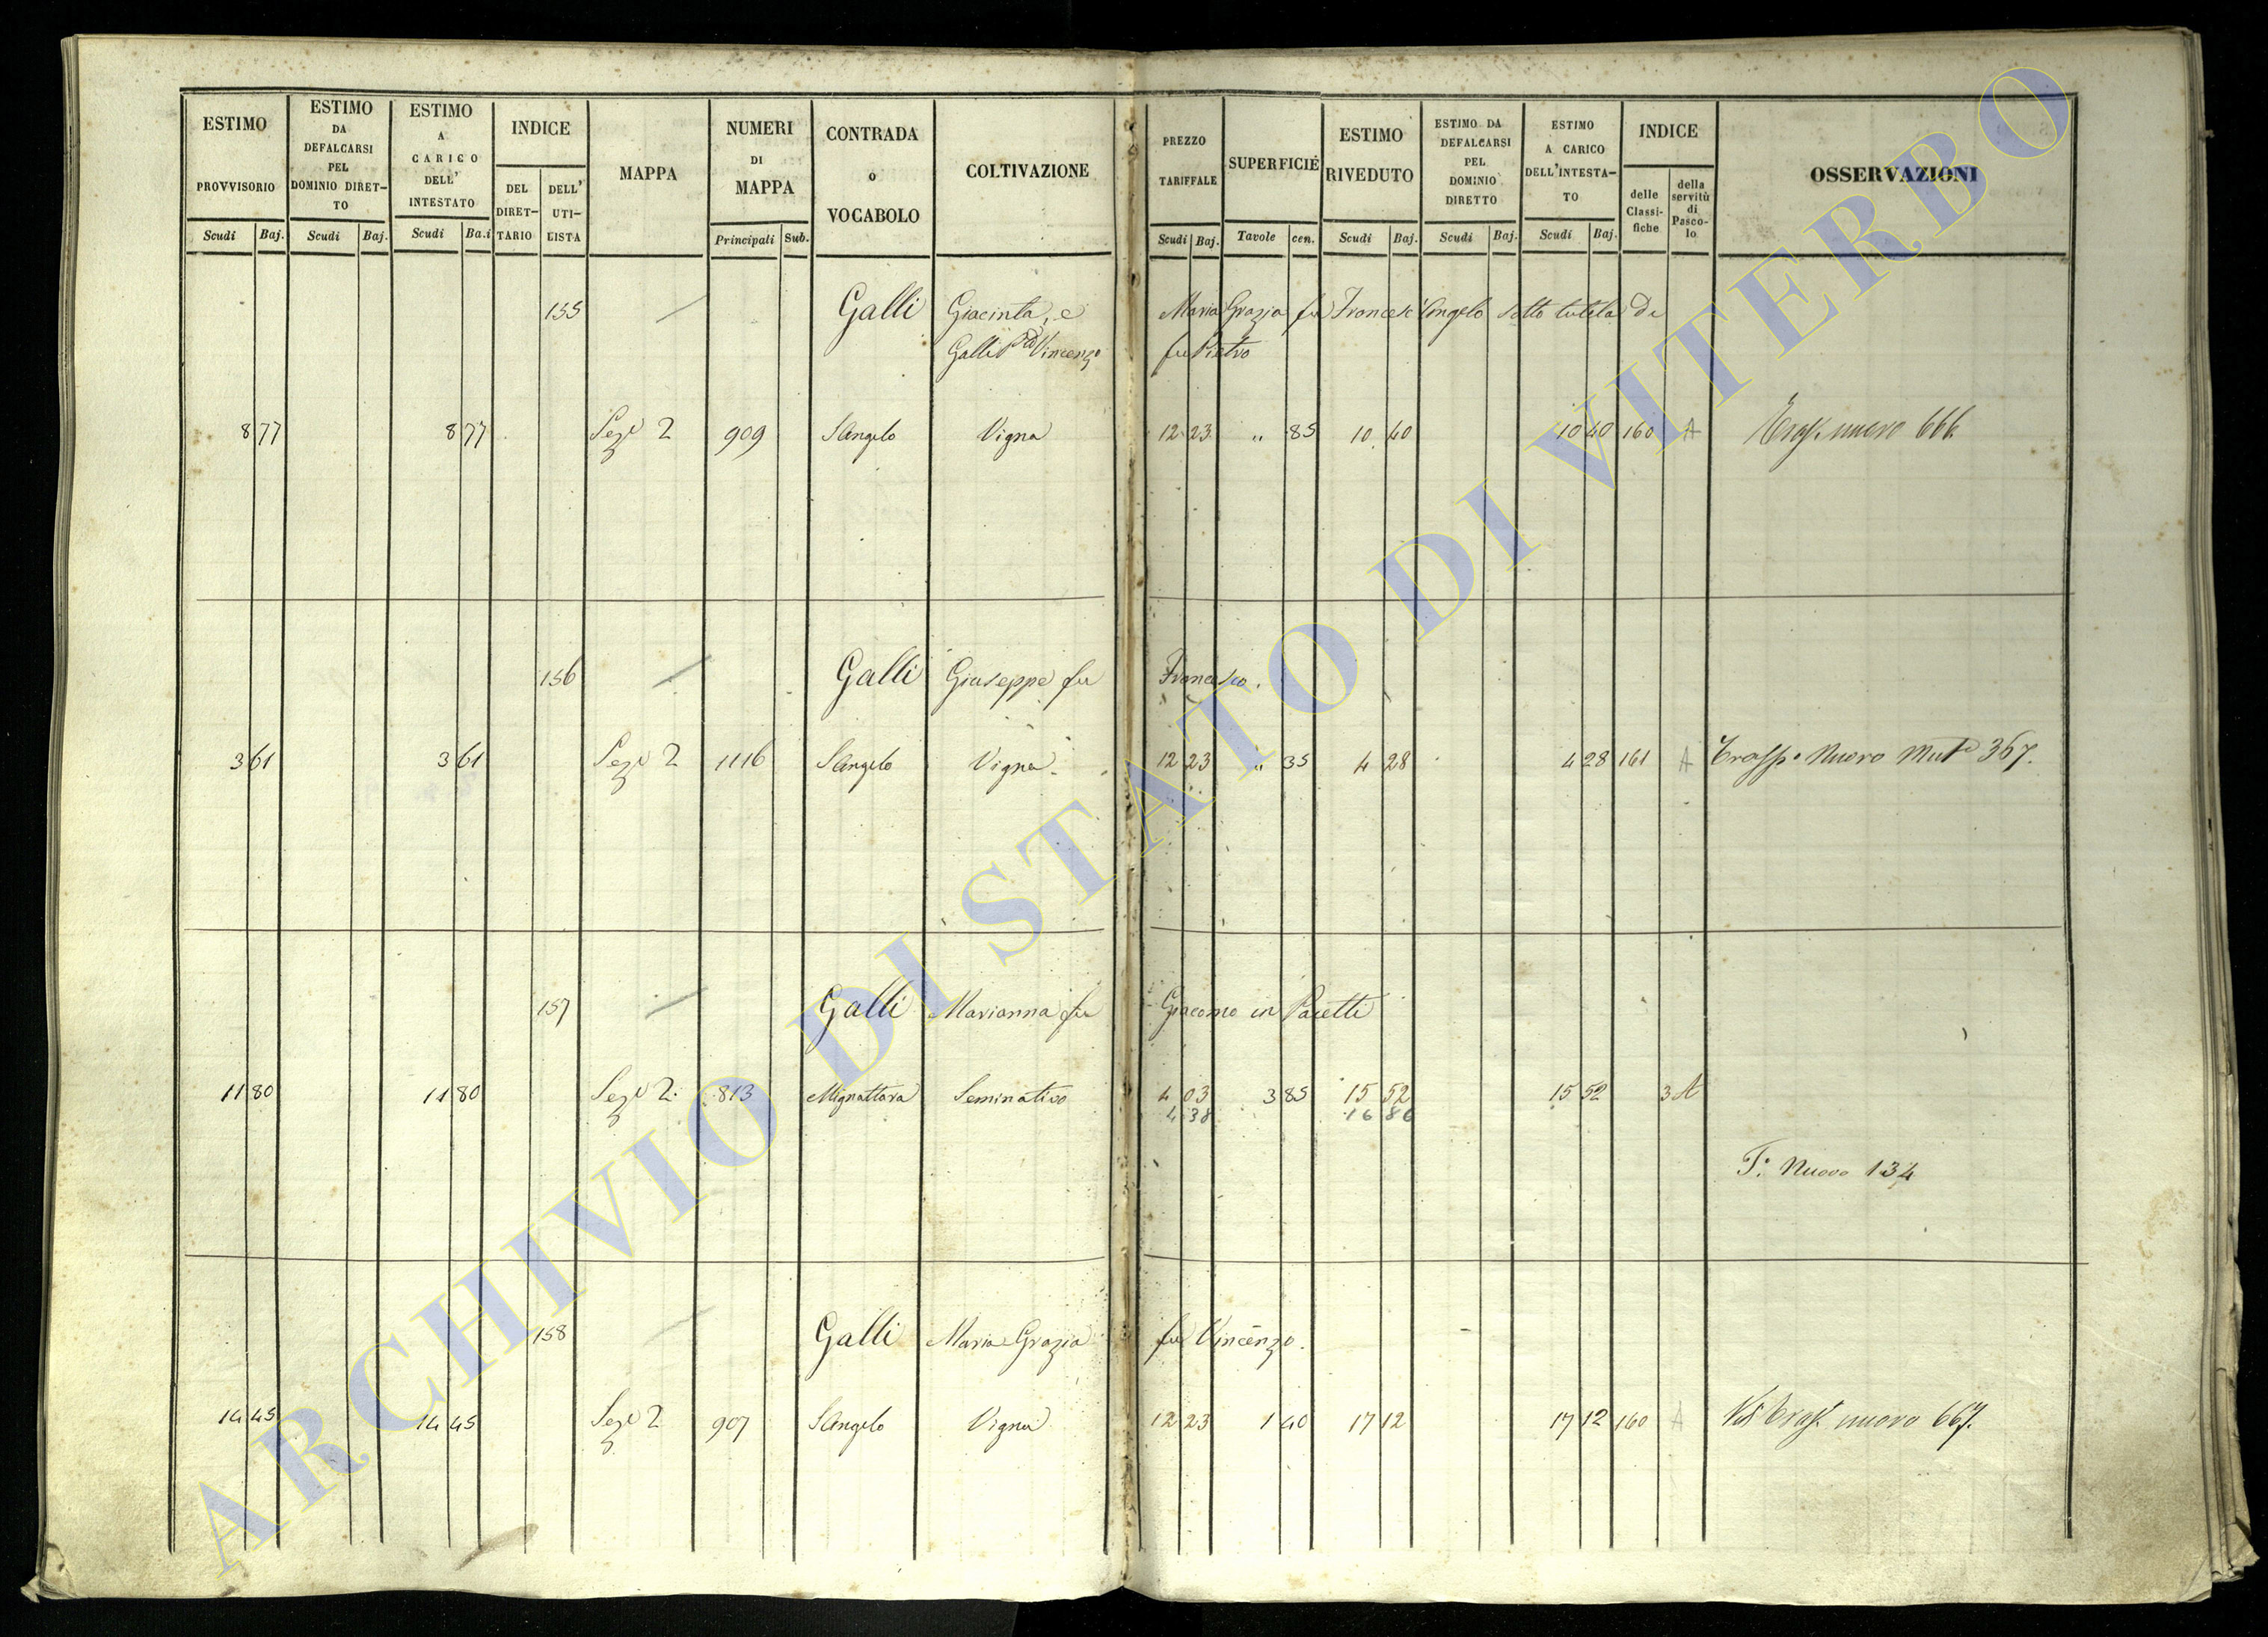 ESTIMO PROVVISORIO Scudi Baj.
ESTIMO DA DEFALCARSI PEL DOMINIO DIRET-TO Scudi Baj.
ESTIMO A CARICO DELL' INTESTATO Scudi Ba.i
INDICE DEL DIRET-TARIO DELL' UTI-LISTA
MAPPA
NUMERI DI MAPPA Principali Sub.
CONTRADA o VOCABOLO
COLTIVAZIONE
PREZZO TARIFFALE Scudi Baj.
SUPERFICIE Tavole cen.
ESTIMO RIVEDUTO Scudi Baj.
ESTIMO DA DEFALCARSI PEL DOMINIO DIRETTO Scudi Baj.
ESTIMO A CARICO DELL'INTESTA-TO Scudi Baj.
INDICE delle Classi-fiche della servitù di Pasco-lo
OSSERVAZIONI
155 Galli Giacinta, e Maria Grazia fu Francesc'Angelo sotto tutela di
Galli Vincenzo fu Pietro
8 77 8 77 Sez. 2 909 S Angelo Vigna 12 23 " 85 10 40 10 40 160 A Trasp. nuovo 666
156 Galli Giuseppe fu Francesco.
3 61 3 61 Sez. 2 1116 S Angelo Vigna 12 23 " 35 4 28 4 28 161 A Trasp. Nuovo 367.
157 Galli Marianna fu Giacomo in Pacetti
11 80 11 80 Sez. 2 813 Mignattara Seminativo 4 03 3 85 15 52 15 52 3 A
4 38 16 86
T. Nuovo 134
158 Galli Maria Grazia fu Vincenzo.
14 45 14 45 Sez. 2 907 S Angelo Vigna 12 23 1 40 17 12 17 12 160 A Trasp. nuovo 667.
ARCHIVIO DI STATO DI VITERBO